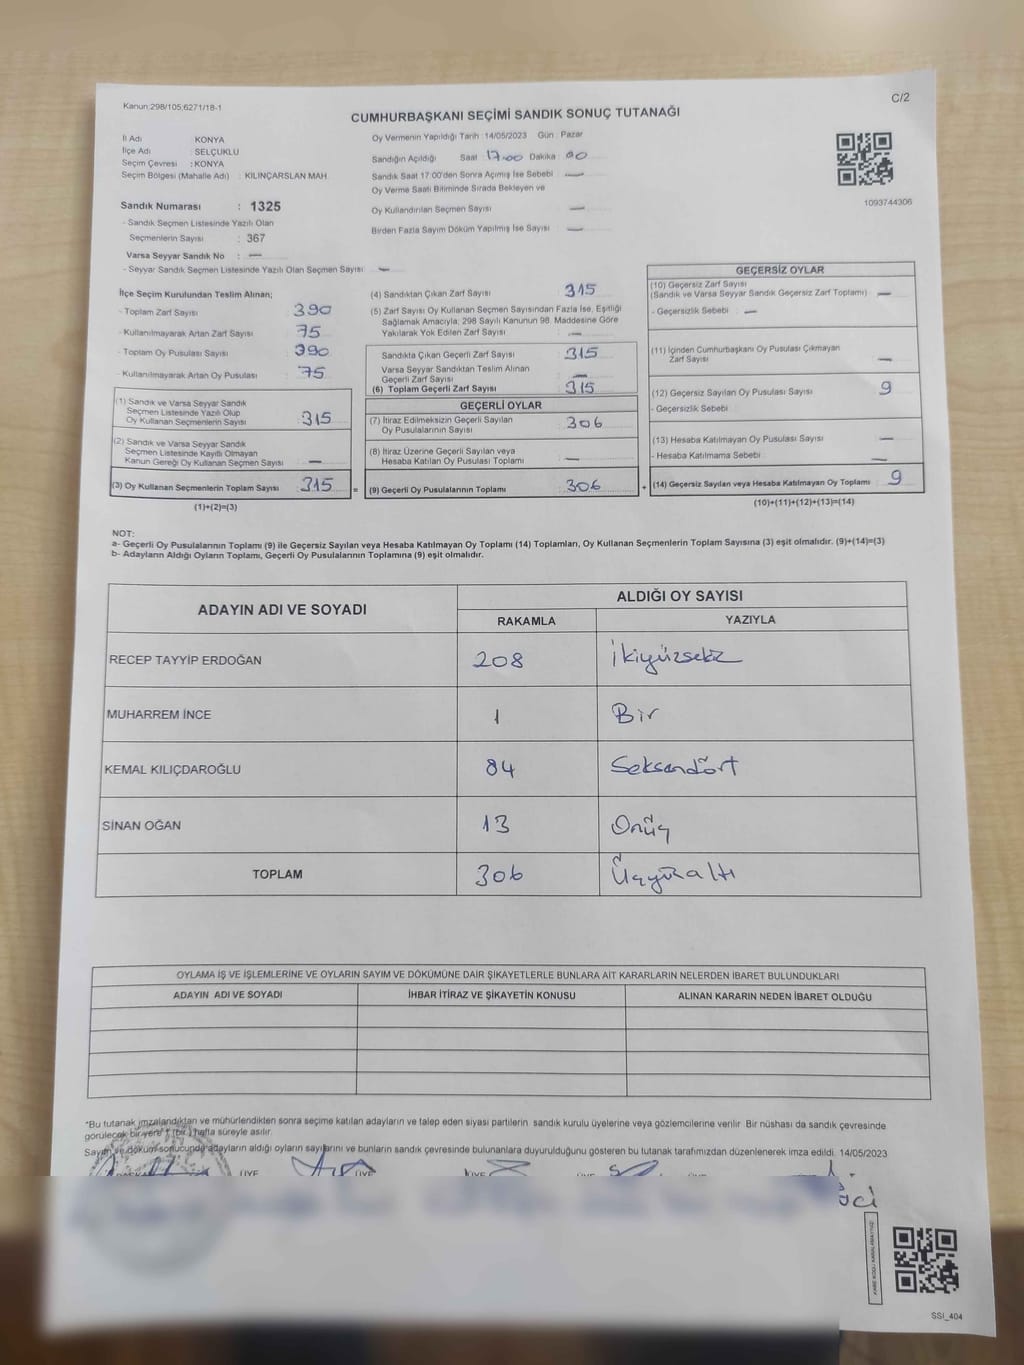 Kanun:298/105,6271/18-1
C/2
CUMHURBAŞKANI SEÇİMİ SANDIK SONUÇ TUTANAĞI
İl Adı : KONYA
İlçe Adı : SELÇUKLU
Seçim Çevresi : KONYA
Seçim Bölgesi (Mahalle Adı) : KILINÇARSLAN MAH.
Sandık Numarası : 1325
- Sandık Seçmen Listesinde Yazılı Olan
Seçmenlerin Sayısı : 367
Varsa Seyyar Sandık No : —
- Seyyar Sandık Seçmen Listesinde Yazılı Olan Seçmen Sayısı : —
Oy Vermenin Yapıldığı Tarih : 14/05/2023 Gün : Pazar
Sandığın Açıldığı Saat 17:00 Dakika 00
Sandık Saat 17:00'den Sonra Açımış İse Sebebi —
Oy Verme Saati Bitiminde Sırada Bekleyen ve
Oy Kullandırılan Seçmen Sayısı —
Birden Fazla Sayım Döküm Yapılmış İse Sayısı —
1093744306
İlçe Seçim Kurulundan Teslim Alınan;
- Toplam Zarf Sayısı : 390
- Kullanılmayarak Artan Zarf Sayısı : 75
- Toplam Oy Pusulası Sayısı : 390
- Kullanılmayarak Artan Oy Pusulası : 75
(1) Sandık ve Varsa Seyyar Sandık
Seçmen Listesinde Yazılı Olup
Oy Kullanan Seçmenlerin Sayısı : 315
(2) Sandık ve Varsa Seyyar Sandık
Seçmen Listesinde Kayıtlı Olmayan
Kanun Gereği Oy Kullanan Seçmen Sayısı : —
(3) Oy Kullanan Seçmenlerin Toplam Sayısı : 315
(1)+(2)=(3)
(4) Sandıktan Çıkan Zarf Sayısı : 315
(5) Zarf Sayısı Oy Kullanan Seçmen Sayısından Fazla İse, Eşitliği
Sağlamak Amacıyla; 298 Sayılı Kanunun 98. Maddesine Göre
Yakılarak Yok Edilen Zarf Sayısı : —
Sandıkta Çıkan Geçerli Zarf Sayısı : 315
Varsa Seyyar Sandıktan Teslim Alınan
Geçerli Zarf Sayısı : —
(6) Toplam Geçerli Zarf Sayısı : 315
GEÇERLİ OYLAR
(7) İtiraz Edilmeksizin Geçerli Sayılan
Oy Pusulalarının Sayısı : 306
(8) İtiraz Üzerine Geçerli Sayılan veya
Hesaba Katılan Oy Pusulası Toplamı : —
= (9) Geçerli Oy Pusulalarının Toplamı : 306
GEÇERSİZ OYLAR
(10) Geçersiz Zarf Sayısı
(Sandık ve Varsa Seyyar Sandık Geçersiz Zarf Toplamı) : —
- Geçersizlik Sebebi : —
(11) İçinden Cumhurbaşkanı Oy Pusulası Çıkmayan
Zarf Sayısı : —
(12) Geçersiz Sayılan Oy Pusulası Sayısı : 9
- Geçersizlik Sebebi :
(13) Hesaba Katılmayan Oy Pusulası Sayısı : —
- Hesaba Katılmama Sebebi : —
+ (14) Geçersiz Sayılan veya Hesaba Katılmayan Oy Toplamı : 9
(10)+(11)+(12)+(13)=(14)
NOT:
a- Geçerli Oy Pusulalarının Toplamı (9) ile Geçersiz Sayılan veya Hesaba Katılmayan Oy Toplamı (14) Toplamları, Oy Kullanan Seçmenlerin Toplam Sayısına (3) eşit olmalıdır. (9)+(14)=(3)
b- Adayların Aldığı Oyların Toplamı, Geçerli Oy Pusulalarının Toplamına (9) eşit olmalıdır.
ADAYIN ADI VE SOYADI ALDIĞI OY SAYISI
RAKAMLA YAZIYLA
RECEP TAYYİP ERDOĞAN 208 İkiyüzsekiz
MUHARREM İNCE 1 Bir
KEMAL KILIÇDAROĞLU 84 Seksendört
SİNAN OĞAN 13 Onüç
TOPLAM 306 Üçyüzaltı
OYLAMA İŞ VE İŞLEMLERİNE VE OYLARIN SAYIM VE DÖKÜMÜNE DAİR ŞİKAYETLERLE BUNLARA AİT KARARLARIN NELERDEN İBARET BULUNDUKLARI
ADAYIN ADI VE SOYADI İHBAR İTİRAZ VE ŞİKAYETİN KONUSU ALINAN KARARIN NEDEN İBARET OLDUĞU
*Bu tutanak imzalandıktan ve mühürlendikten sonra seçime katılan adayların ve talep eden siyasi partilerin sandık kurulu üyelerine veya gözlemcilerine verilir. Bir nüshası da sandık çevresinde
görülecek bir yere * (bir) hafta süreyle asılır.
Sayım ve döküm sonucunda adayların aldığı oyların sayılarını ve bunların sandık çevresinde bulunanlara duyurulduğunu gösteren bu tutanak tarafımızdan düzenlenerek imza edildi. 14/05/2023
ÜYE ÜYE ÜYE
SSI_404